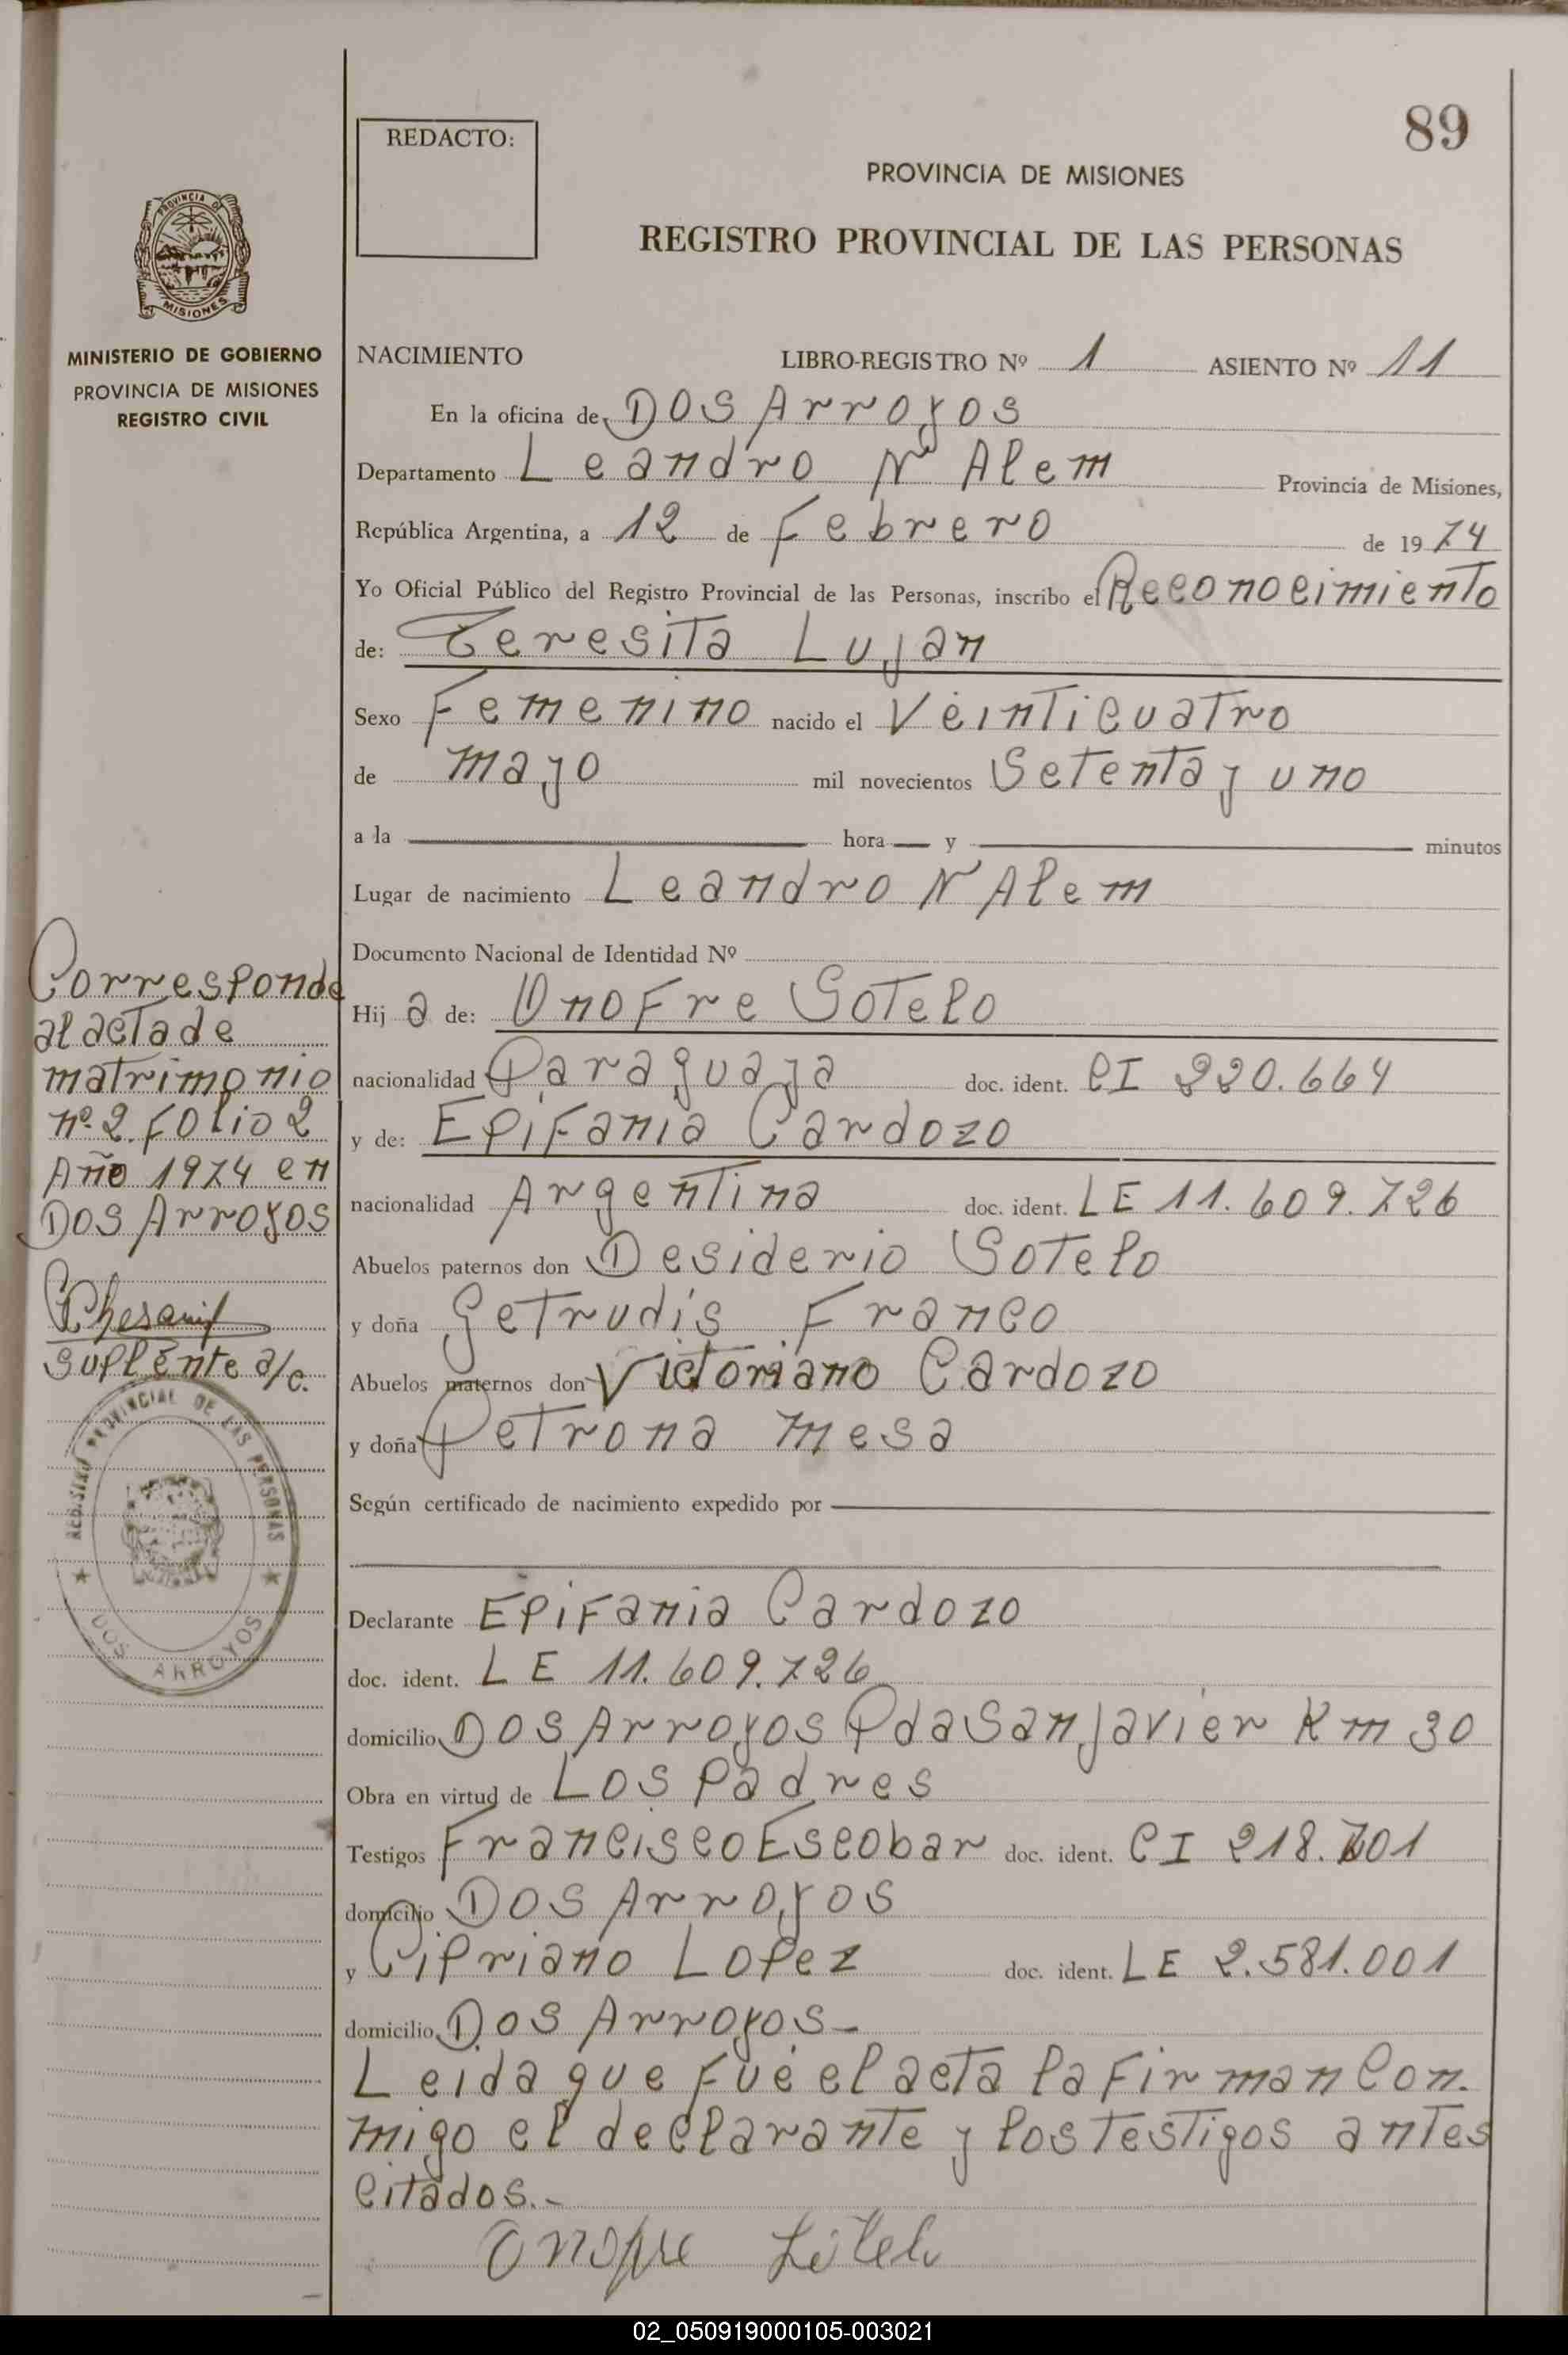 89
REDACTO:
PROVINCIA DE MISIONES
REGISTRO PROVINCIAL DE LAS PERSONAS
PROVINCIA D
MISIONES
MINISTERIO DE GOBIERNO
PROVINCIA DE MISIONES
REGISTRO CIVIL
NACIMIENTO LIBRO-REGISTRO Nº 1 ASIENTO Nº 11
En la oficina de Dos Arroyos
Departamento Leandro N Alem Provincia de Misiones,
República Argentina, a 12 de Febrero de 1974
Yo Oficial Público del Registro Provincial de las Personas, inscribo el Reconocimiento
de: Teresita Lujan
Sexo Femenino nacido el Veinticuatro
de mayo mil novecientos Setenta y uno
a la hora y minutos
Lugar de nacimiento Leandro N Alem
Documento Nacional de Identidad Nº
Hija de: Onofre Sotelo
nacionalidad Paraguaya doc. ident. CI 220.664
y de: Epifania Cardozo
nacionalidad Argentina doc. ident. LE 11.609.726
Abuelos paternos don Desiderio Sotelo
y doña Getrudis Franco
Abuelos maternos don Victoriano Cardozo
y doña Petrona Mesa
Según certificado de nacimiento expedido por
Declarante Epifania Cardozo
doc. ident. LE 11.609.726
domicilio Dos Arroyos Pda San Javier Km 30
Obra en virtud de Los Padres
Testigos Francisco Escobar doc. ident. CI 218.701
domicilio Dos Arroyos
y Cipriano Lopez doc. ident. LE 2.581.001
domicilio Dos Arroyos-
Leida que fué el acta la firman con
migo el declarante y los testigos antes
citados.-
Onofre
Corresponde
al acta de
matrimonio
nº 2 Folio 2
Año 1974 en
Dos Arroyos
Suplente a/c.
REGISTRO PROVINCIAL DE LAS PERSONAS
DOS ARROYOS
02_050919000105-003021